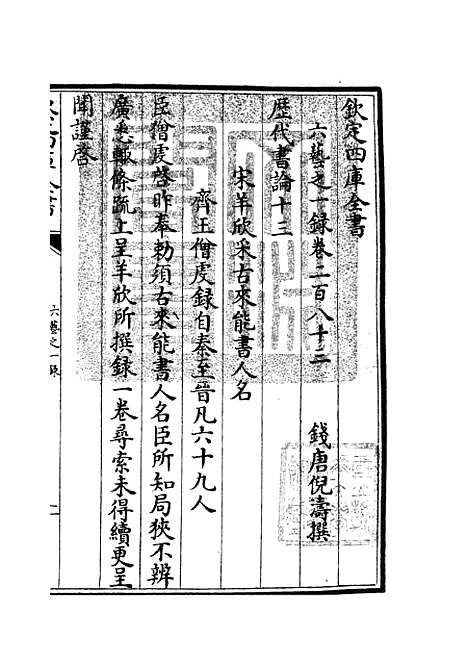 欽定四庫全書
六藝之一録卷二百八十三
錢唐倪濤撰
歴代書論十三
宋羊欣采古來能書人名
齊王僧䖍録自秦至晉凡六十九人
臣僧䖍啓昨奉勅須古來能書人名臣所知局狹不辨
廣悉輙條疏上呈羊欣所撰録一卷尋索未得續更呈
聞謹啓
六藝之一録